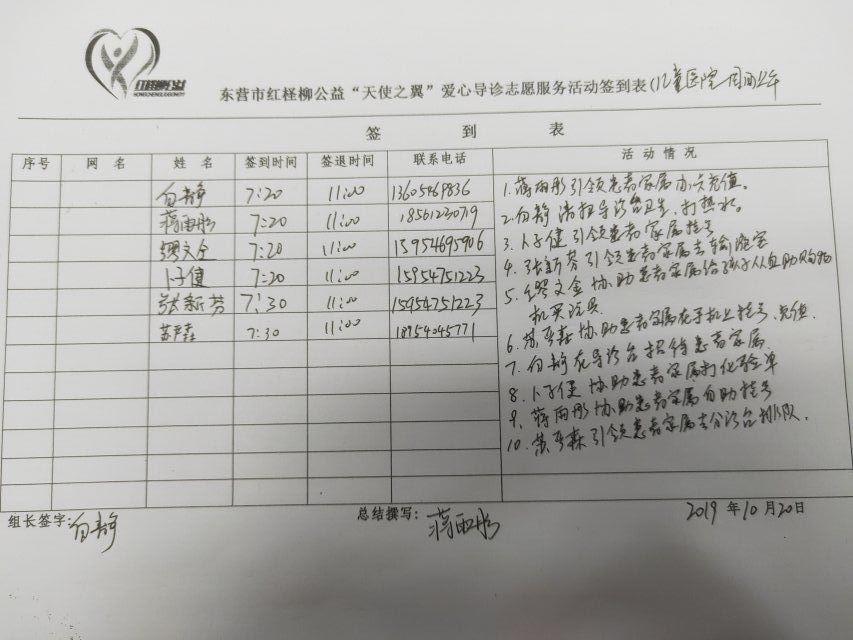 东营市红柽柳公益“天使之翼”爱心导诊志愿服务活动签到表(儿童医院 周日上午
签 到 表
序号 网 名 姓 名 签到时间 签退时间 联系电话 活 动 情 况
白静 7:20 11:00 13605469836
蒋雨彤 7:20 11:00 18561220719
缪文金 7:20 11:00 15954695906
卜子健 7:20 11:00 15954751223
张新芳 7:30 11:00 15954751223
苏严森 7:30 11:00 18954045771
1.蒋雨彤引领患者家属办卡充值。
2.白静清扫导诊台卫生,打热水。
3.卜子健引领患者家属挂号
4.张新芳引领患者家属去输液室
5.缪文金协助患者家属给孩子从自助购物
机买玩具
6.苏严森协助患者家属在手机上挂号、充值.
7.白静在导诊台招待患者家属
8.卜子健协助患者家属打化验单
9.蒋雨彤协助患者家属自助挂号
10.苏严森引领患者家属去分诊台排队.
组长签字:白静 总结撰写:蒋雨彤 2019年10月20日